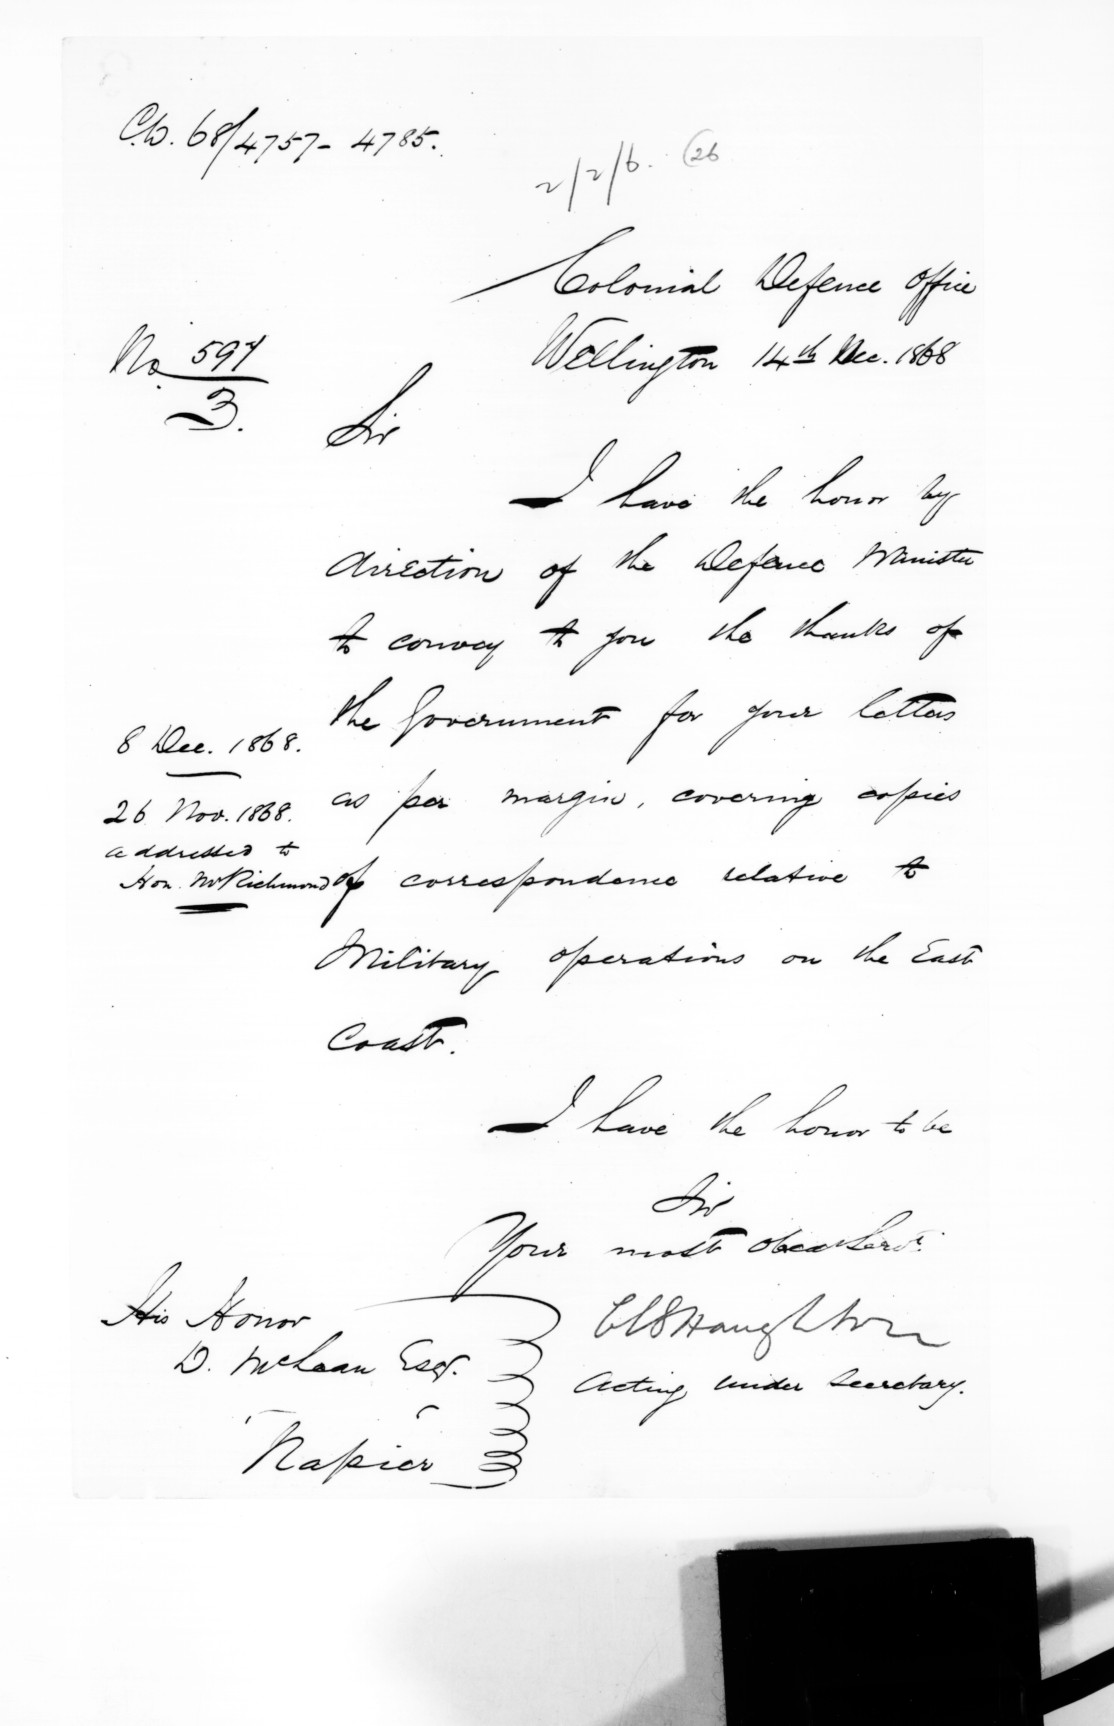 C.D. 68/4757-4785.
2/2/6. 26
Colonial Defence Office
Wellington 14th Dec. 1868
No 597
3.
Sir
I have the honor by
direction of the Defence Minister
to convey to you the thanks of
the Government for your letters
8 Dec. 1868.
as per margin, covering copies
26 Nov. 1868.
addressed to
Hon. Mr Richmond
of correspondence relative to
Military operations on the East
Coast.
I have the honor to be
Sir
Your most obed Servt.
His Honor
D. McLean Esqr.
Napier
Haughton
Acting Under Secretary.